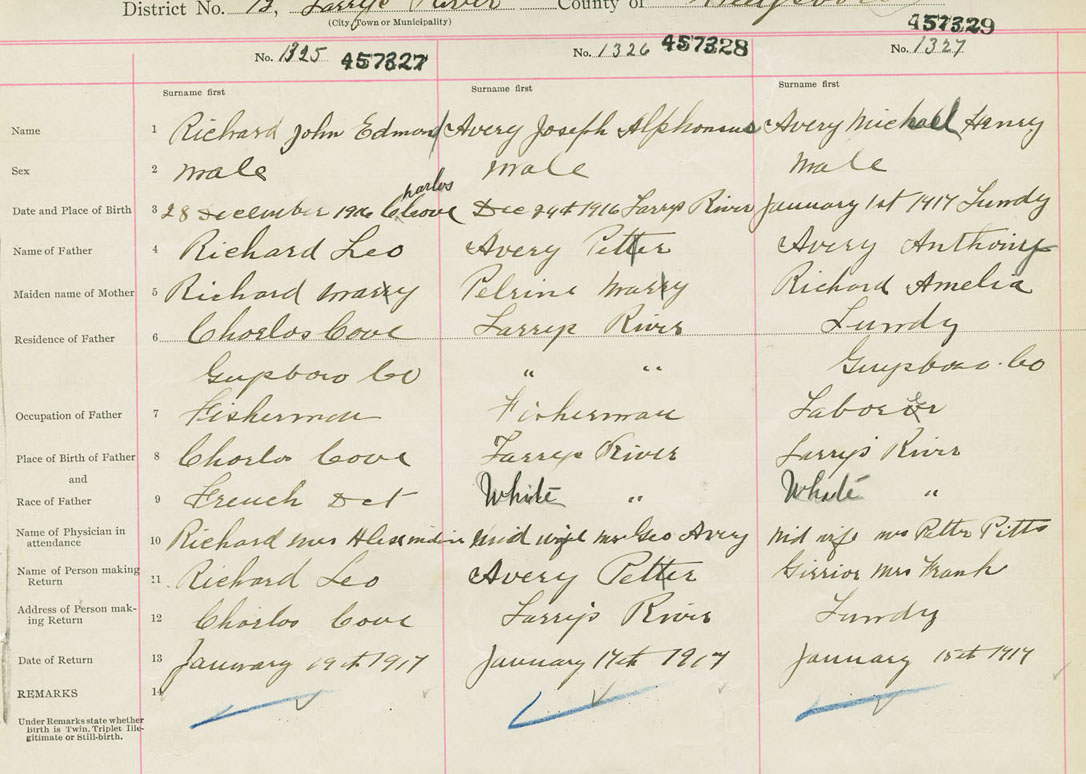 District No. 13, Larry's River County of
(City, Town or Municipality)
No. 1325 457327 No. 1326 457328 No. 1327 457329
Surname first Surname first Surname first
Name 1 Richard John Edmond Avery Joseph Alphonsus Avery Michael Henry
Sex 2 male male male
Date and Place of Birth 3 28 December 1916 Charlos Cove Dec 24th 1916 Larrys River January 1st 1917 Lundy
Name of Father 4 Richard Leo Avery Petter Avery Anthony
Maiden name of Mother 5 Richard Marry Pelrine Marry Richard Amelia
Residence of Father 6 Chorlos Cove Larrys River Lundy
Guysboro Co " " Guysboro. Co
Occupation of Father 7 Fisherman Fisherman Laborer
Place of Birth of Father 8 Chorlos Cove Larrys River Larry's River
and
Race of Father 9 French Det White " White "
Name of Physician in
attendance 10 Richard mrs mid wife mrs Geo Avery mid wife mrs Petter Pitts
Name of Person making
Return 11 Richard Leo Avery Petter Girrior Mrs Frank
Address of Person mak-
ing Return 12 Chorlos Cove Larry's River Lundy
Date of Return 13 January 19th 1917 January 17th 1917 January 15th 1917
REMARKS 14
Under Remarks state whether
Birth is Twin, Triplet Ille-
gitimate or Still-birth.